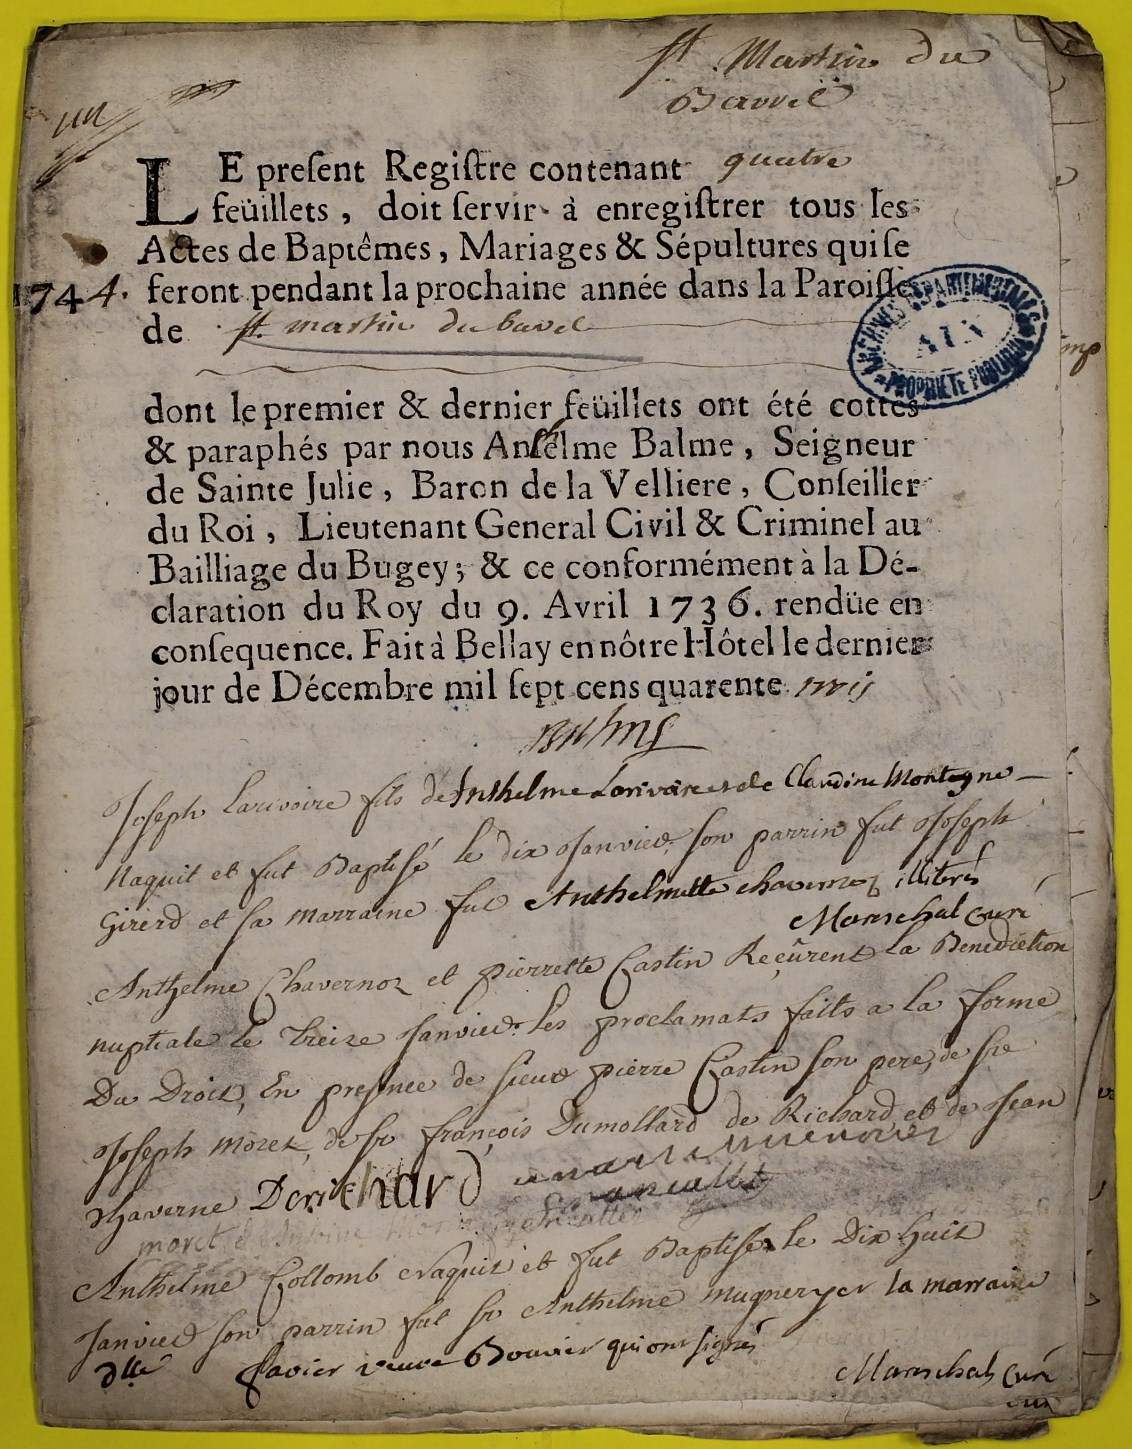 St. Martin du
Bavvel
un
LE preſent Regiſtre contenant quatre
feüillets, doit ſervir à enregiſtrer tous les
Actes de Baptêmes, Mariages & Sépultures qui ſe
1744. feront pendant la prochaine année dans la Paroiſſe
de St. martin du bavel
ARCHIVES DEPARTEMENTALES
AIN
PROPRIETE PUBLIQUE
dont le premier & dernier feüillets ont été cottés
& paraphés par nous Anſelme Balme, Seigneur
de Sainte Julie, Baron de la Velliere, Conſeiller
du Roi, Lieutenant General Civil & Criminel au
Bailliage du Bugey; & ce conformément à la Dé-
claration du Roy du 9. Avril 1736. rendüe en
conſequence. Fait à Bellay en nôtre Hôtel le dernier
jour de Décembre mil ſept cens quarente trois
Balme
Joseph Larivoire fils de Anthelme Larivoire et de Claudine Montagne
Naquit et fut Baptisé le dix Janvier, son parrin fut Joseph
Girerd et sa marraine fut Anthelmette chavernoz illitrés
Mareschal Curé
Anthelme Chavernoz et pierrette Castin Reçûrent la Benediction
nuptiale le treize Janvier les proclamats faits a la forme
Du Droit, En presence de sieur pierre Castin son pere, de sre
Joseph Moret, de sr françois Dumollard de Richard et de Jean
Chaverne Derichard
moret
Anthelme Collomb Naquit et fut Baptisé le Dix huit
Janvier son parrin fut sr Anthelme mugneryer la marraine
dlle favier veuve Bouvier qui ont signés
Mareschal Curé
un